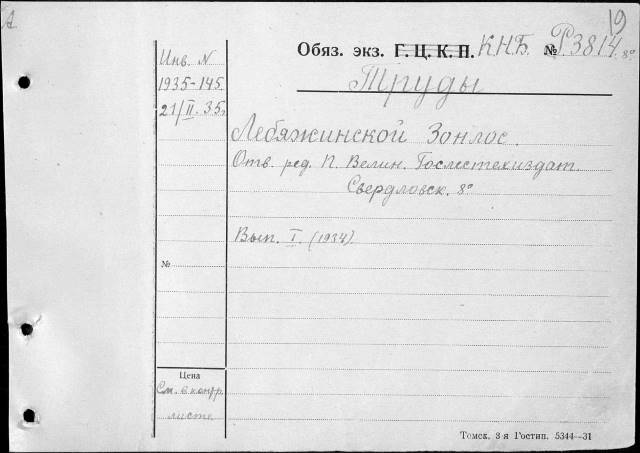 А
19
Обяз. экз. Г. Ц. К. П. КНБ. № Р3814. 8º
Труды
Инв. N
1935-145
21/II. 35.
Лебяжинской Зонлос.
Отв. ред. П. Велин. Гослестехиздат.
Свердловск. 8º
Вып. I. (1934)
№
Цена
См. в контр.
листе
Томск. 3-я Гостип. 5344—31